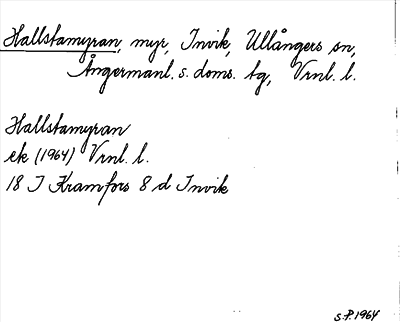 Hallstamyran, myr, Invik, Ullångers sn,
Ångermanl. s. doms. tg, Vrnl. l.
Hallstamyran
ek (1964) Vrnl. l.
18 I Kramfors 8 d Invik
S.P. 1964